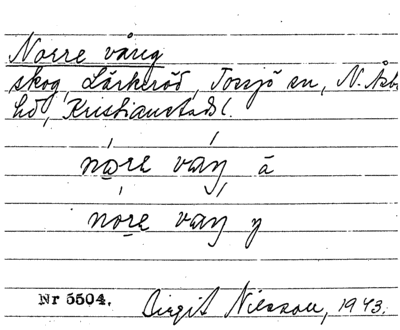 Norre vång
skog, Lärkeröd, Torsjö sn, N. Åsbo
hd, Kristianstads l.
nore váŋ ā
nore váŋ y
Nr 5504. Birgit Nilsson, 1943.